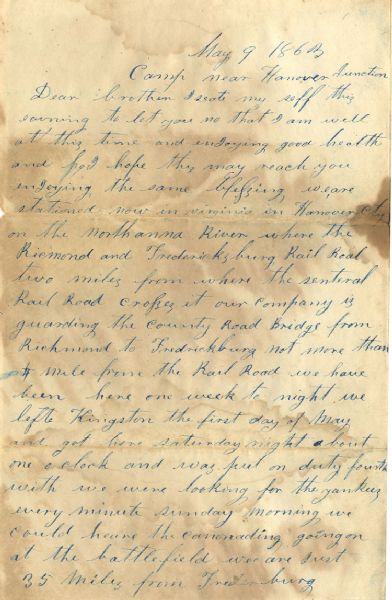 May 9 1863
Camp near Hanover Junction
Dear brother I seate my self this
eavning to let you no that I am well
at this time and enJoying good health
and I hope this may reach you
enJoying the same blessing we are
stationed now in virginia in Hanover cty
on the North anna River where the
Ricmond and Fredericksburg Rail Road
two miles from where the sentral
Rail Road crosses it our company is
guarding the county Road Bridge from
Richmond to Fredrickburg not more than
mile from the Rail Road we have
been here one week to night we
lefte Kingston the first day of May
and got here saturday night about
one oclock and was put on duty fourth
with we were looking for the yankees
every minute sunday morning we
could heare the canonading going on
at the battlefield we are Just
35 Miles from